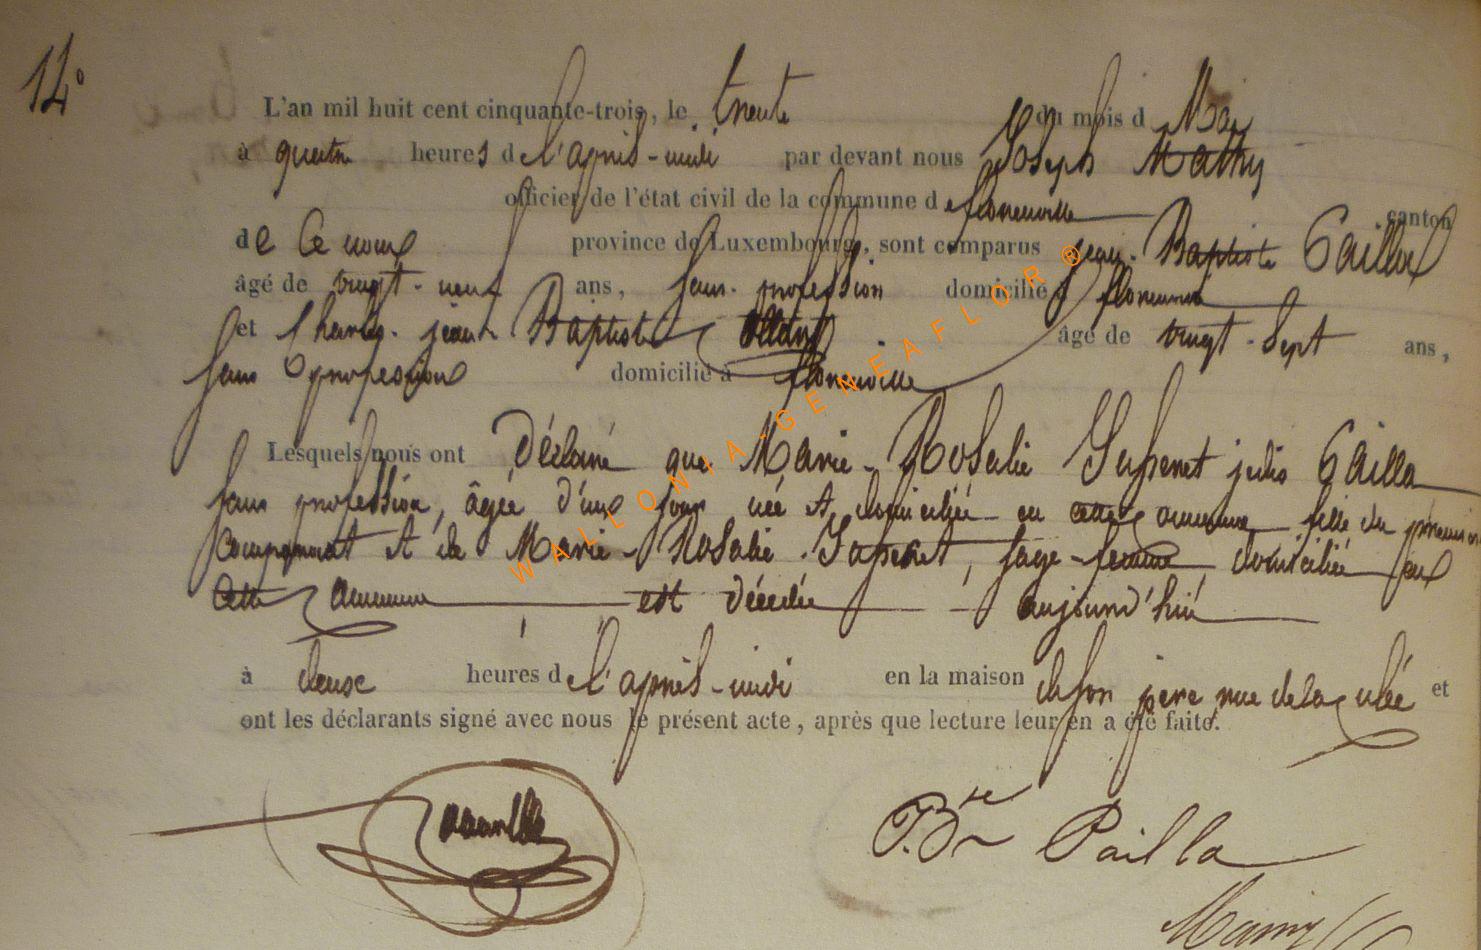 14°
L'an mil huit cent cinquante-trois, le trente du mois d Mai
à quatre heures de l'après-midi par devant nous Joseph Mathy
officier de l'état civil de la commune de florenville canton
de Ce nom province de Luxembourg, sont comparus jean-Baptiste Pailla
âgé de vingt-neuf ans, sans profession domicilié à florenville
et Charles jean Baptiste âgé de vingt-sept ans,
sans profession domicilié à florenville
Lesquels nous ont Déclaré que Marie-Rosalie Suzenet jadis Pailla
sans profession, âgée d'un jour née et domiciliée en cette commune fille du premier
Comparant et de Marie-Rosalie Suzenet, sage-femme domiciliée en
Cette Commune est décédée aujourd'hui
à deux heures de l'après-midi en la maison de son père rue de la et
ont les déclarants signé avec nous le présent acte, après que lecture leur en a été faite.
J.Bte Pailla
WALLONIA-GENEAFLOR®